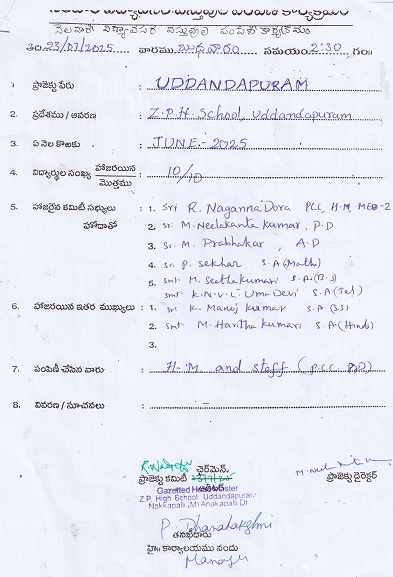 నెలవారీ విద్యావసర వస్తువుల పంపిణీ కార్యక్రమం
తేది 23/07/2025 వారము బుధవారం సమయం 2:30 గం॥
1. ప్రాజెక్టు పేరు : UDDANDAPURAM
2. ప్రదేశము / ఆవరణ : Z.P.H. School, Uddandapuram
3. ఏ నెల కొఱకు : JUNE - 2025
4. విద్యార్థుల సంఖ్య హాజరయిన / మొత్తము : 10/10
5. హాజరైన కమిటీ సభ్యులు హోదాతో : 1. Sri R. Naganna Dora PCC, H.M, MEO-2
2. Sri M. Neelakanta Kumar, P.D
3. Sr. M. Prabhakar, A.D
4. Sr. P. Sekhar S.A (Math)
5. Smt M. Seethakumari S.A (B.S)
Smt K.N.V.L. Uma Devi S.A (Tel)
6. హాజరయిన ఇతర ముఖ్యులు : 1. Sr. K. Manoj Kumar S.A
2. Smt M. Haritha Kumari S.A (Hindi)
3.
7. పంపిణీ చేసిన వారు : H.M and staff (P.C.C
8. వివరణ / సూచనలు :
చైర్మెన్,
ప్రాజెక్టు కమిటీ
ప్రాజెక్టు డైరెక్టర్
Gazetted Headmaster
Z.P. High School Uddandapuram
Nakkapalli (M) Anakapalli Dt
P. Dhanalakshmi
తనిఖీదారు
హై॥ కార్యాలయము నందు